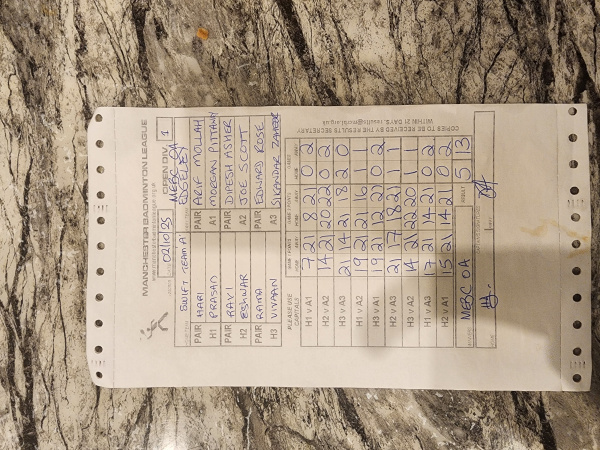 MANCHESTER BADMINTON LEAGUE
02/10/25 OPEN DIV. 1
SWIFT TEAM A MEBC OA EDGELEY
PAIR HARI PAIR ARIF MOLLAH
H1 PRASAD A1 MORGAN
PAIR RAVI PAIR DIPESH
H2 ESHWAR A2 JOE SCOTT
PAIR RAMA PAIR EDWARD ROSE
H3 VIVAAN A3 SIKANDAR
PLEASE USE CAPITALS
HOME AWAY HOME AWAY HOME AWAY
H1 v A1 7 21 8 21 0 2
H2 v A2 14 21 20 22 0 2
H3 v A3 21 14 21 18 2 0
H1 v A2 19 21 21 16 1 1
H3 v A1 19 21 12 21 0 2
H2 v A3 21 17 18 21 1 1
H3 v A2 14 21 22 20 1 1
H1 v A3 17 21 14 21 0 2
H2 v A1 15 21 14 21 0 2
MEBC OA RESULT 5 13
COPIES TO BE RECEIVED BY THE RESULTS SECRETARY
WITHIN 21 DAYS.